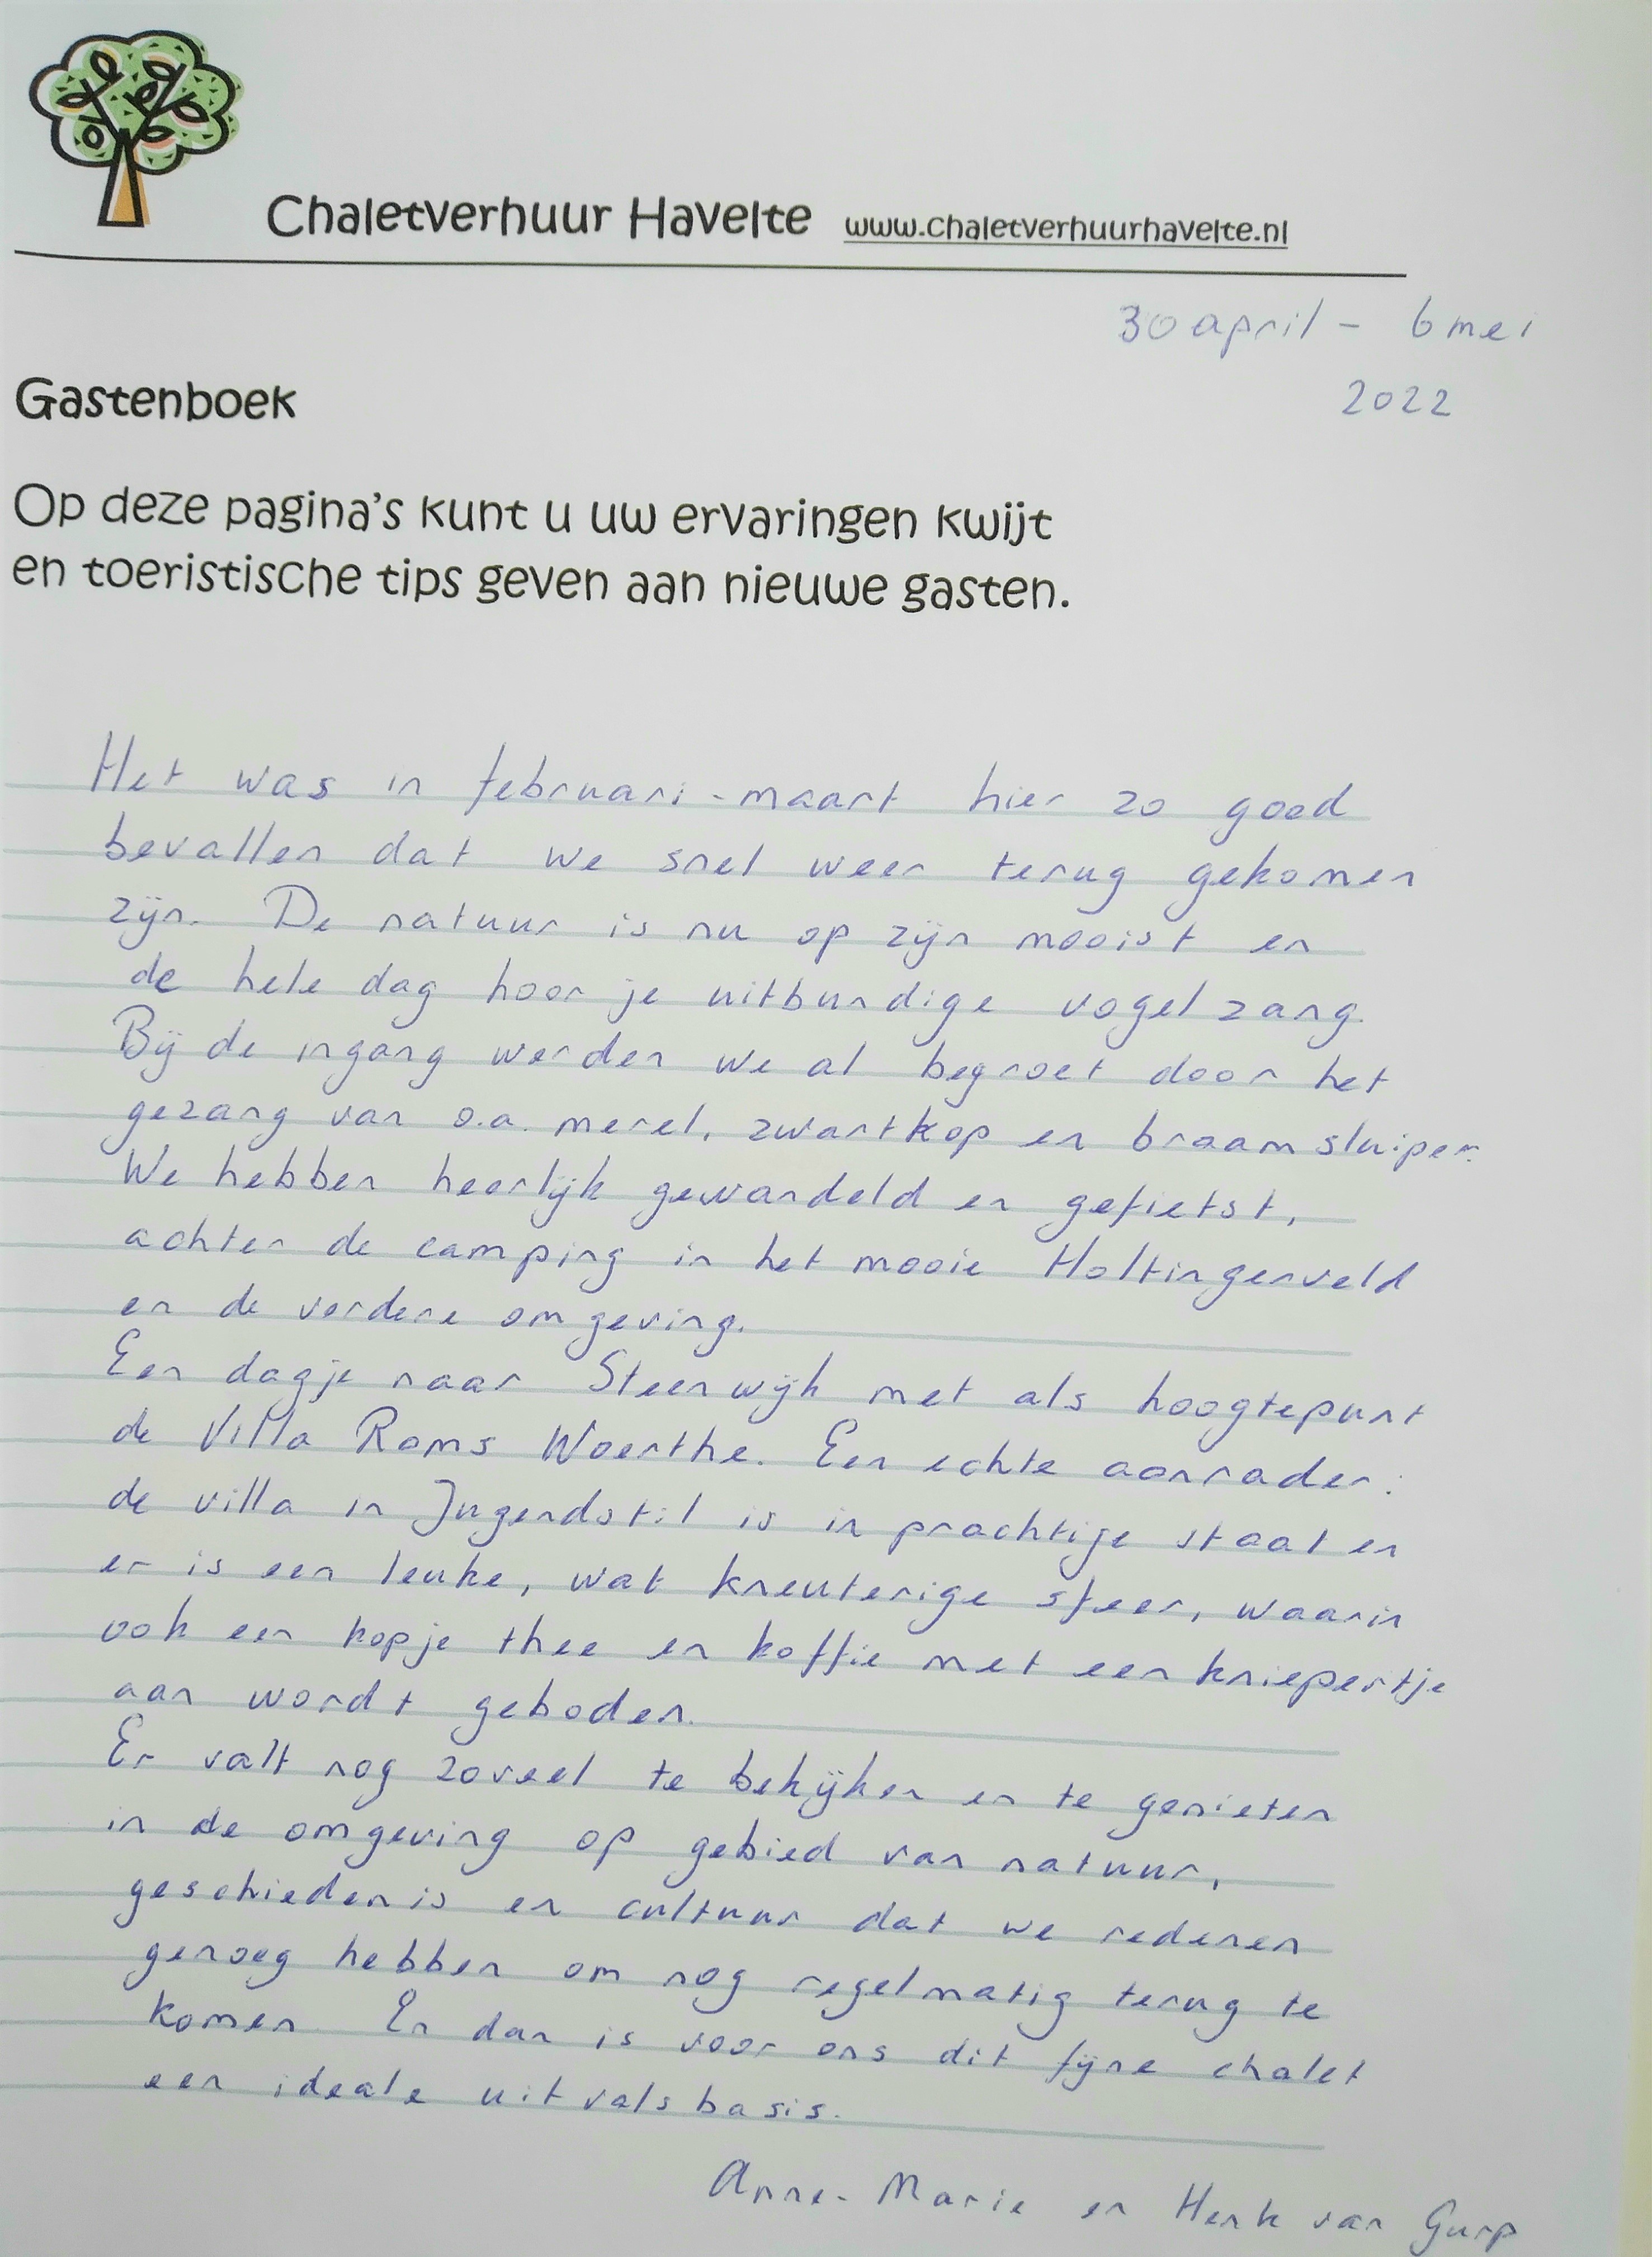 Chaletverhuur Havelte www.chaletverhuurhavelte.nl
30 april - 6 mei
2022
Gastenboek
Op deze pagina's kunt u uw ervaringen kwijt
en toeristische tips geven aan nieuwe gasten.
Het was in februari-maart hier zo goed
bevallen dat we snel weer terug gekomen
zijn. De natuur is nu op zijn mooist en
de hele dag hoor je uitbundige vogelzang.
Bij de ingang werden we al begroet door het
gezang van o.a. merel, zwartkop en braamsluiper.
We hebben heerlijk gewandeld en gefietst,
achter de camping in het mooie Holtingerveld
en de verdere omgeving.
Een dagje naar Steenwijk met als hoogtepunt
de Villa Rams Woerthe. Een echte aanrader:
de villa in Jugendstil is in prachtige staat en
er is een leuke, wat kneuterige sfeer, waarin
ook een kopje thee en koffie met een kniepertje
aan wordt geboden.
Er valt nog zoveel te bekijken en te genieten
in de omgeving op gebied van natuur,
geschiedenis en cultuur dat we redenen
genoeg hebben om nog regelmatig terug te
komen. En dan is voor ons dit fijne chalet
een ideale uitvalsbasis.
Anne-Marie en Henk van Gurp